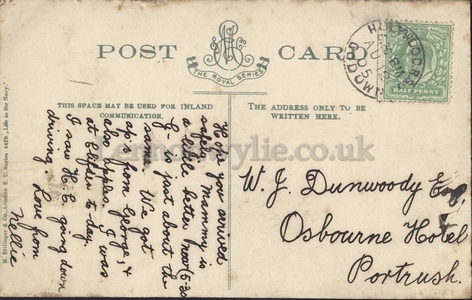 POST CARD
THE ROYAL SERIES
HALF PENNY
THIS SPACE MAY BE USED FOR INLAND
COMMUNICATION.
THE ADDRESS ONLY TO BE
WRITTEN HERE.
Hope you arrived
safely. Mammy is
a little better now (5-30)
G. is just about the
same. We got
ap's from George &
also apples. I was
at to day.
I saw H. C. going down
driving. Love from
Nellie
W. J. Dunwoody Esq
Osbourne Hotel
Portrush.
M. Ettlinger & Co., London E. C. Series "Life in the Navy."